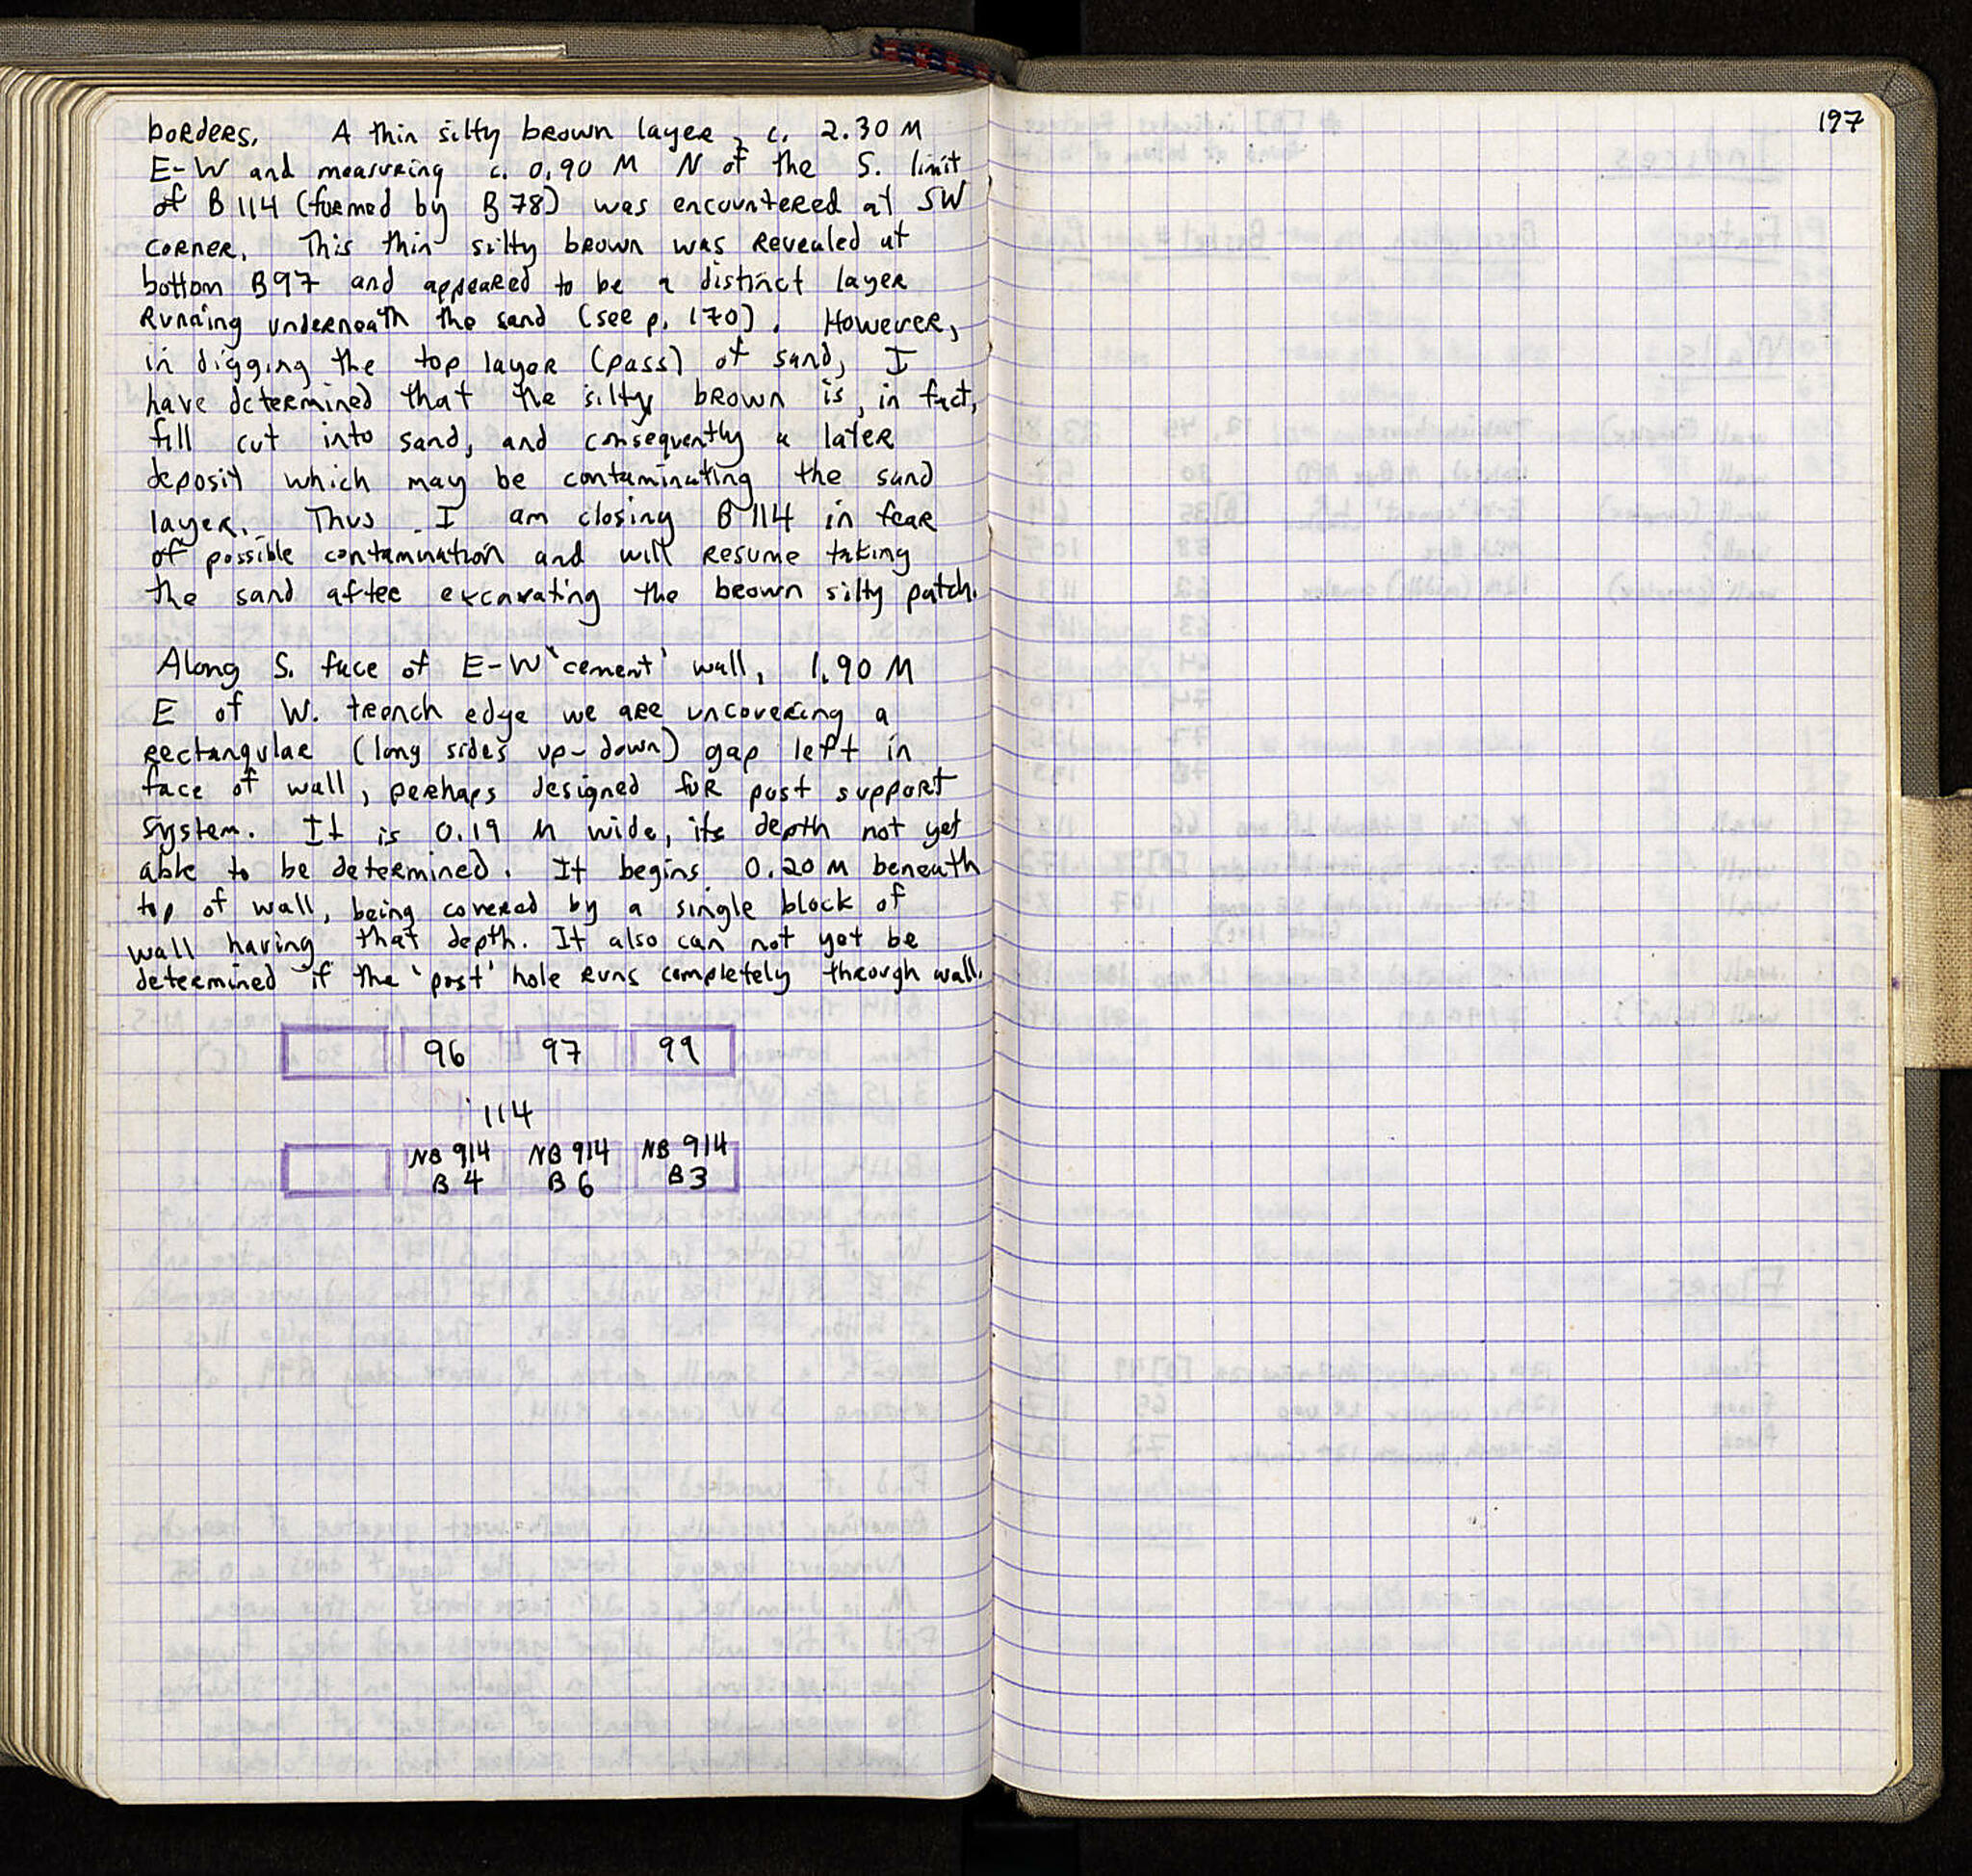 borders. A thin silty brown layer, c. 2.30 M
E-W and measuring c. 0.90 M N of the S. limit
of B 114 (formed by B 78) was encountered at SW
corner. This thin silty brown was revealed at
bottom B97 and appeared to be a distinct layer
running underneath the sand (see p. 170). However,
in digging the top layer (pass) of sand, I
have determined that the silty brown is, in fact,
fill cut into sand, and consequently a later
deposit which may be contaminating the sand
layer. Thus I am closing B 114 in fear
of possible contamination and will resume taking
the sand after excavating the brown silty patch.
Along S. face of E-W 'cement' wall, 1.90 M
E of W. trench edge we are uncovering a
rectangular (long sides up-down) gap left in
face of wall, perhaps designed for post support
system. It is 0.19 M wide, its depth not yet
able to be determined. It begins 0.20 M beneath
top of wall, being covered by a single block of
wall having that depth. It also can not yet be
determined if the 'post' hole runs completely through wall.
96 97 99
114
NB 914 NB 914 NB 914
B 4 B 6 B 3
197